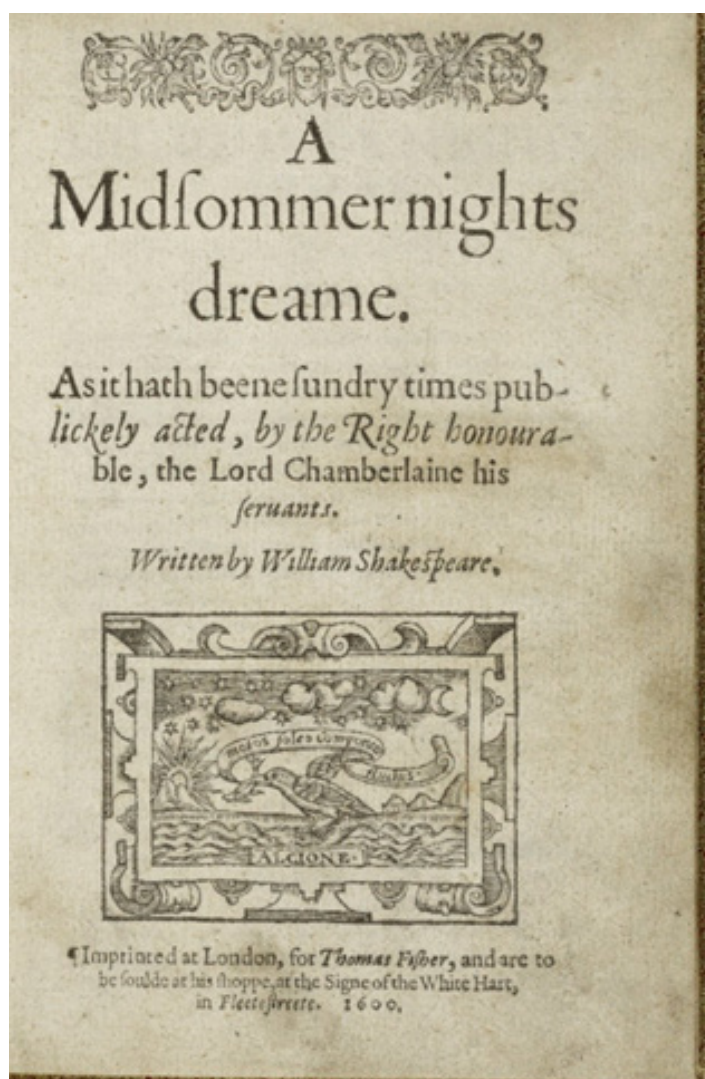 A
Midſommer nights
dreame.
As it hath beene ſundry times pub-
lickely acted, by the Right honoura-
ble, the Lord Chamberlaine his
ſeruants.
Written by William Shakeſpeare.
motos soleo componere
fluctus.
ALCIONE.
¶Imprinted at London, for Thomas Fiſher, and are to
be ſoulde at his ſhoppe, at the Signe of the White Hart,
in Fleeteſtreete. 1600.